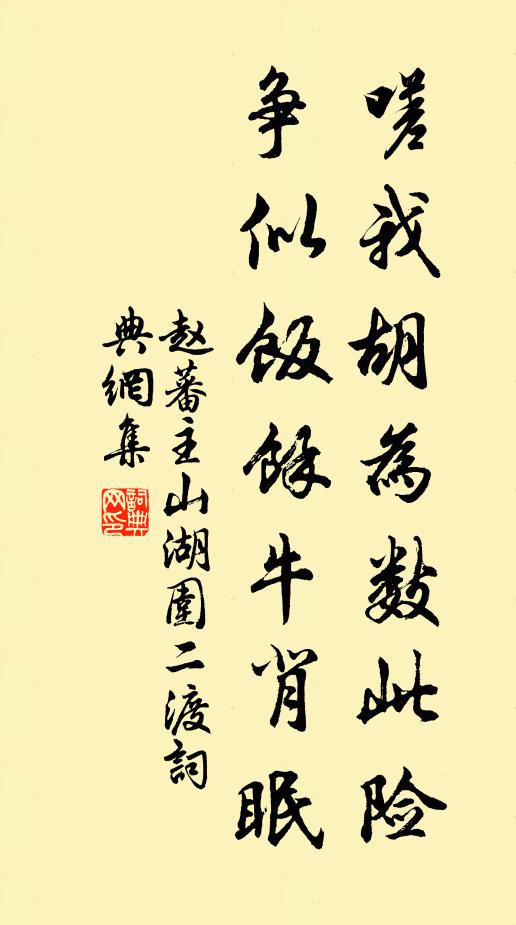 嗟我胡為数此险
争似饭馀牛背眠
赵蕃主山湖圍二渡詞
典網集
詞典网印